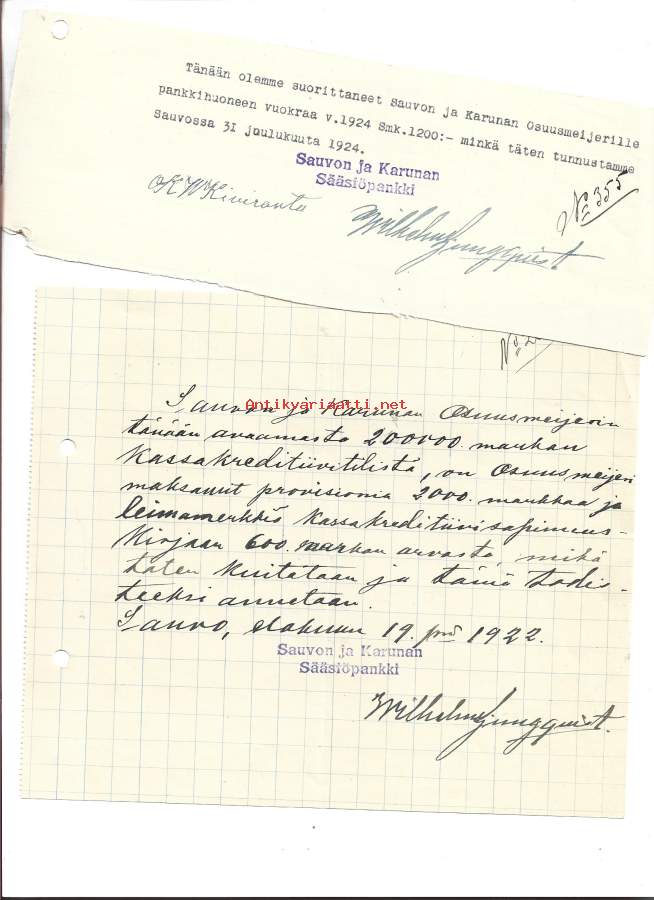 Tänään olemme suorittaneet Sauvon ja Karunan Osuusmeijerille
pankkihuoneen vuokraa v.1924 Smk.1200:- minkä täten tunnustamme
Sauvossa 31 joulukuuta 1924.
Sauvon ja Karunan
Sääsiöpankki
No 355
O K W Kiviranta
Wilhelm Ljungquist
No 2
Sauvon ja Karunan Osuusmeijerin
Antikyariaatti.net
tänään avaamasta 200000. markan
Kassakreditiivitilistä, on Osuusmeijeri
maksanut provisionia 2000. markkaa ja
leimamerkkiä Kassakreditiivisopimus-
Kirjaan 600. markan arvosta, mikä
täten kuitataan ja tämä todis-
teeksi annetaan.
Sauvo, elokuun 19. pnä 1922.
Sauvon ja Karunan
Sääsiöpankki
Wilhelm Ljungquist.